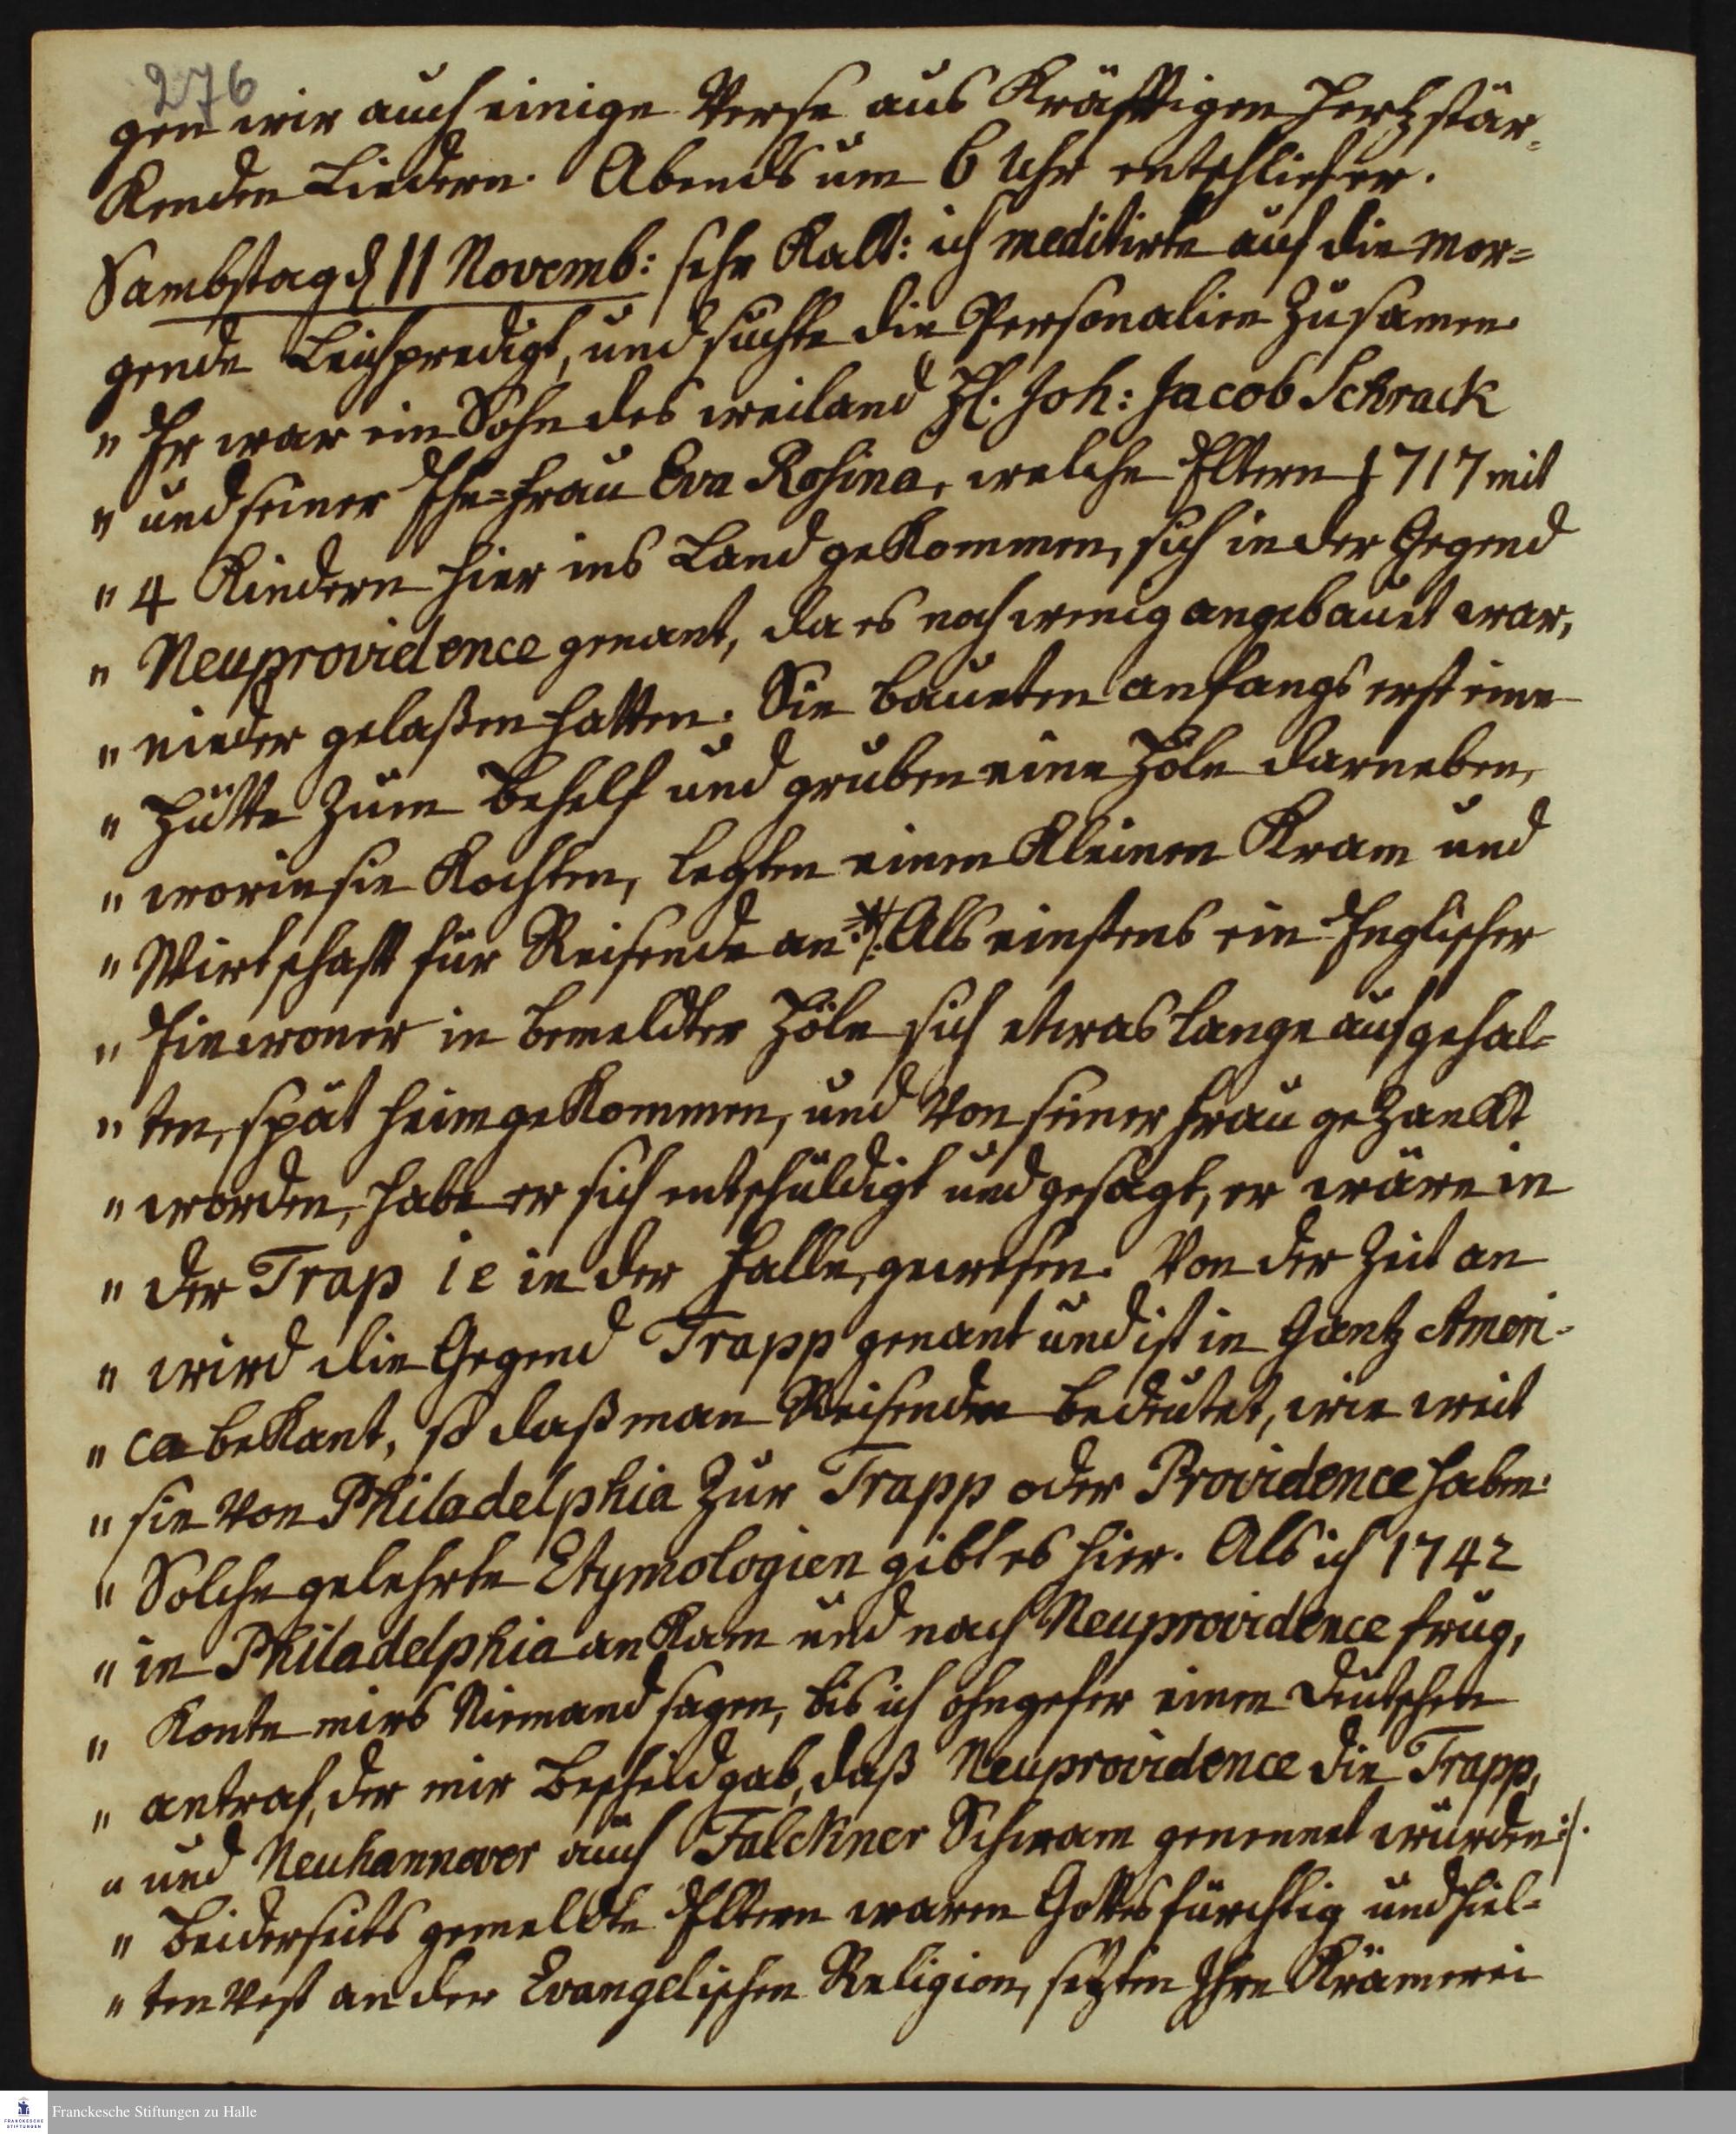 276
gen wir auch einige Verse aus Kräfftigen Hertzstär-
Kenden Liedern. Abends um 6 Uhr entschlief er.
Sambstag d 11 Novemb: sehr Kalt: ich meditirte auf die mor=
gende Leichpredigt, und suchte die Personalien zusamen.
" Er war ein Sohn des weiland H. Joh: Jacob Schrack
" und seiner Ehe=frau Eva Rosina, welche Eltern 1717 mit
" 4 Kindern hier ins Land geKommen, sich in der Gegend
" Neuprovidence genant, da es noch wenig angebauet war,
" nieder gelaßen hatten. Sie baueten anfangs erst eine
" Hütte zum Behelf und gruben eine Höle darneben,
" worin sie Kochten, legten einen Kleinen Kram und
" Wirtschafft für Reisende an. *) /: Als einstens ein Englischer
" Einwoner in bemeldter Höle sich etwas lange aufgehal=
" ten, spät heimgeKommen, und Von seiner Frau gezankt
" worden, habe er sich entschuldigt und gesagt, er wäre in
" der Trap ie in der Falle, gewesen. Von der Zeit an
" wird die Gegend Trapp genant und ist in Gantz Ameri-
" ca beKant, so daß man Reisenden bedeutet, wie weit
" sie Von Philadelphia zur Trapp oder Providence haben.
" Solche gelehrte Etymologien gibt es hier. Als ich 1742
" in Philadelphia anKam und nach Neuprovidence frug,
" Konte mirs Niemand sagen, bis ich ohngefer einen Deutschen
" antraf, der mir Bescheid gab, daß Neuprovidence die Trapp,
" und Neuhannover auch Falckner Schwam genennet würden :/.
" Beiderseits gemeldte Eltern waren Gottesfürchtig und hiel=
" ten Vest an der Evangelischen Religion, setzten Ihre Krämerei
FRANCKESCHE STIFTUNGEN
Franckesche Stiftungen zu Halle